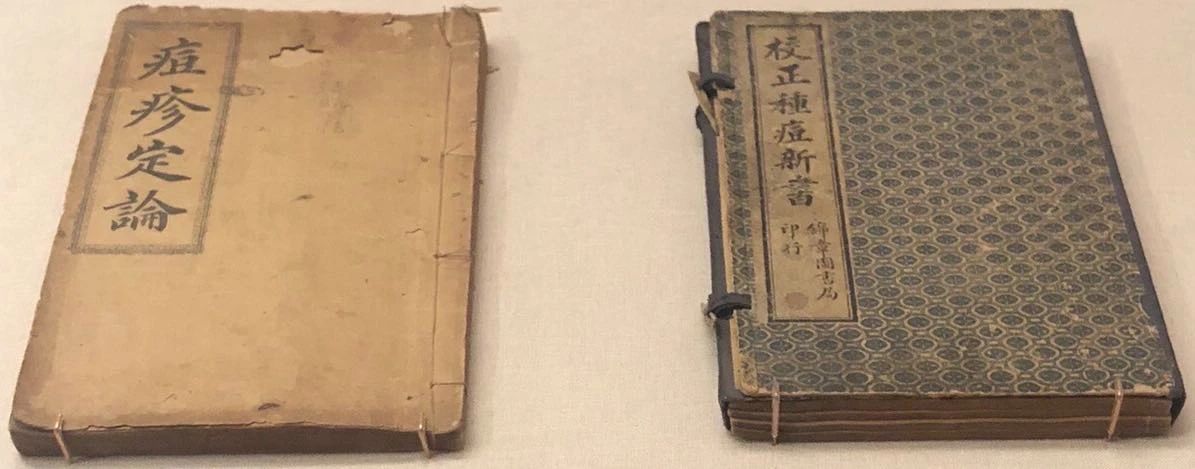 痘疹定論
校正種痘新書
錦章圖書局
印行